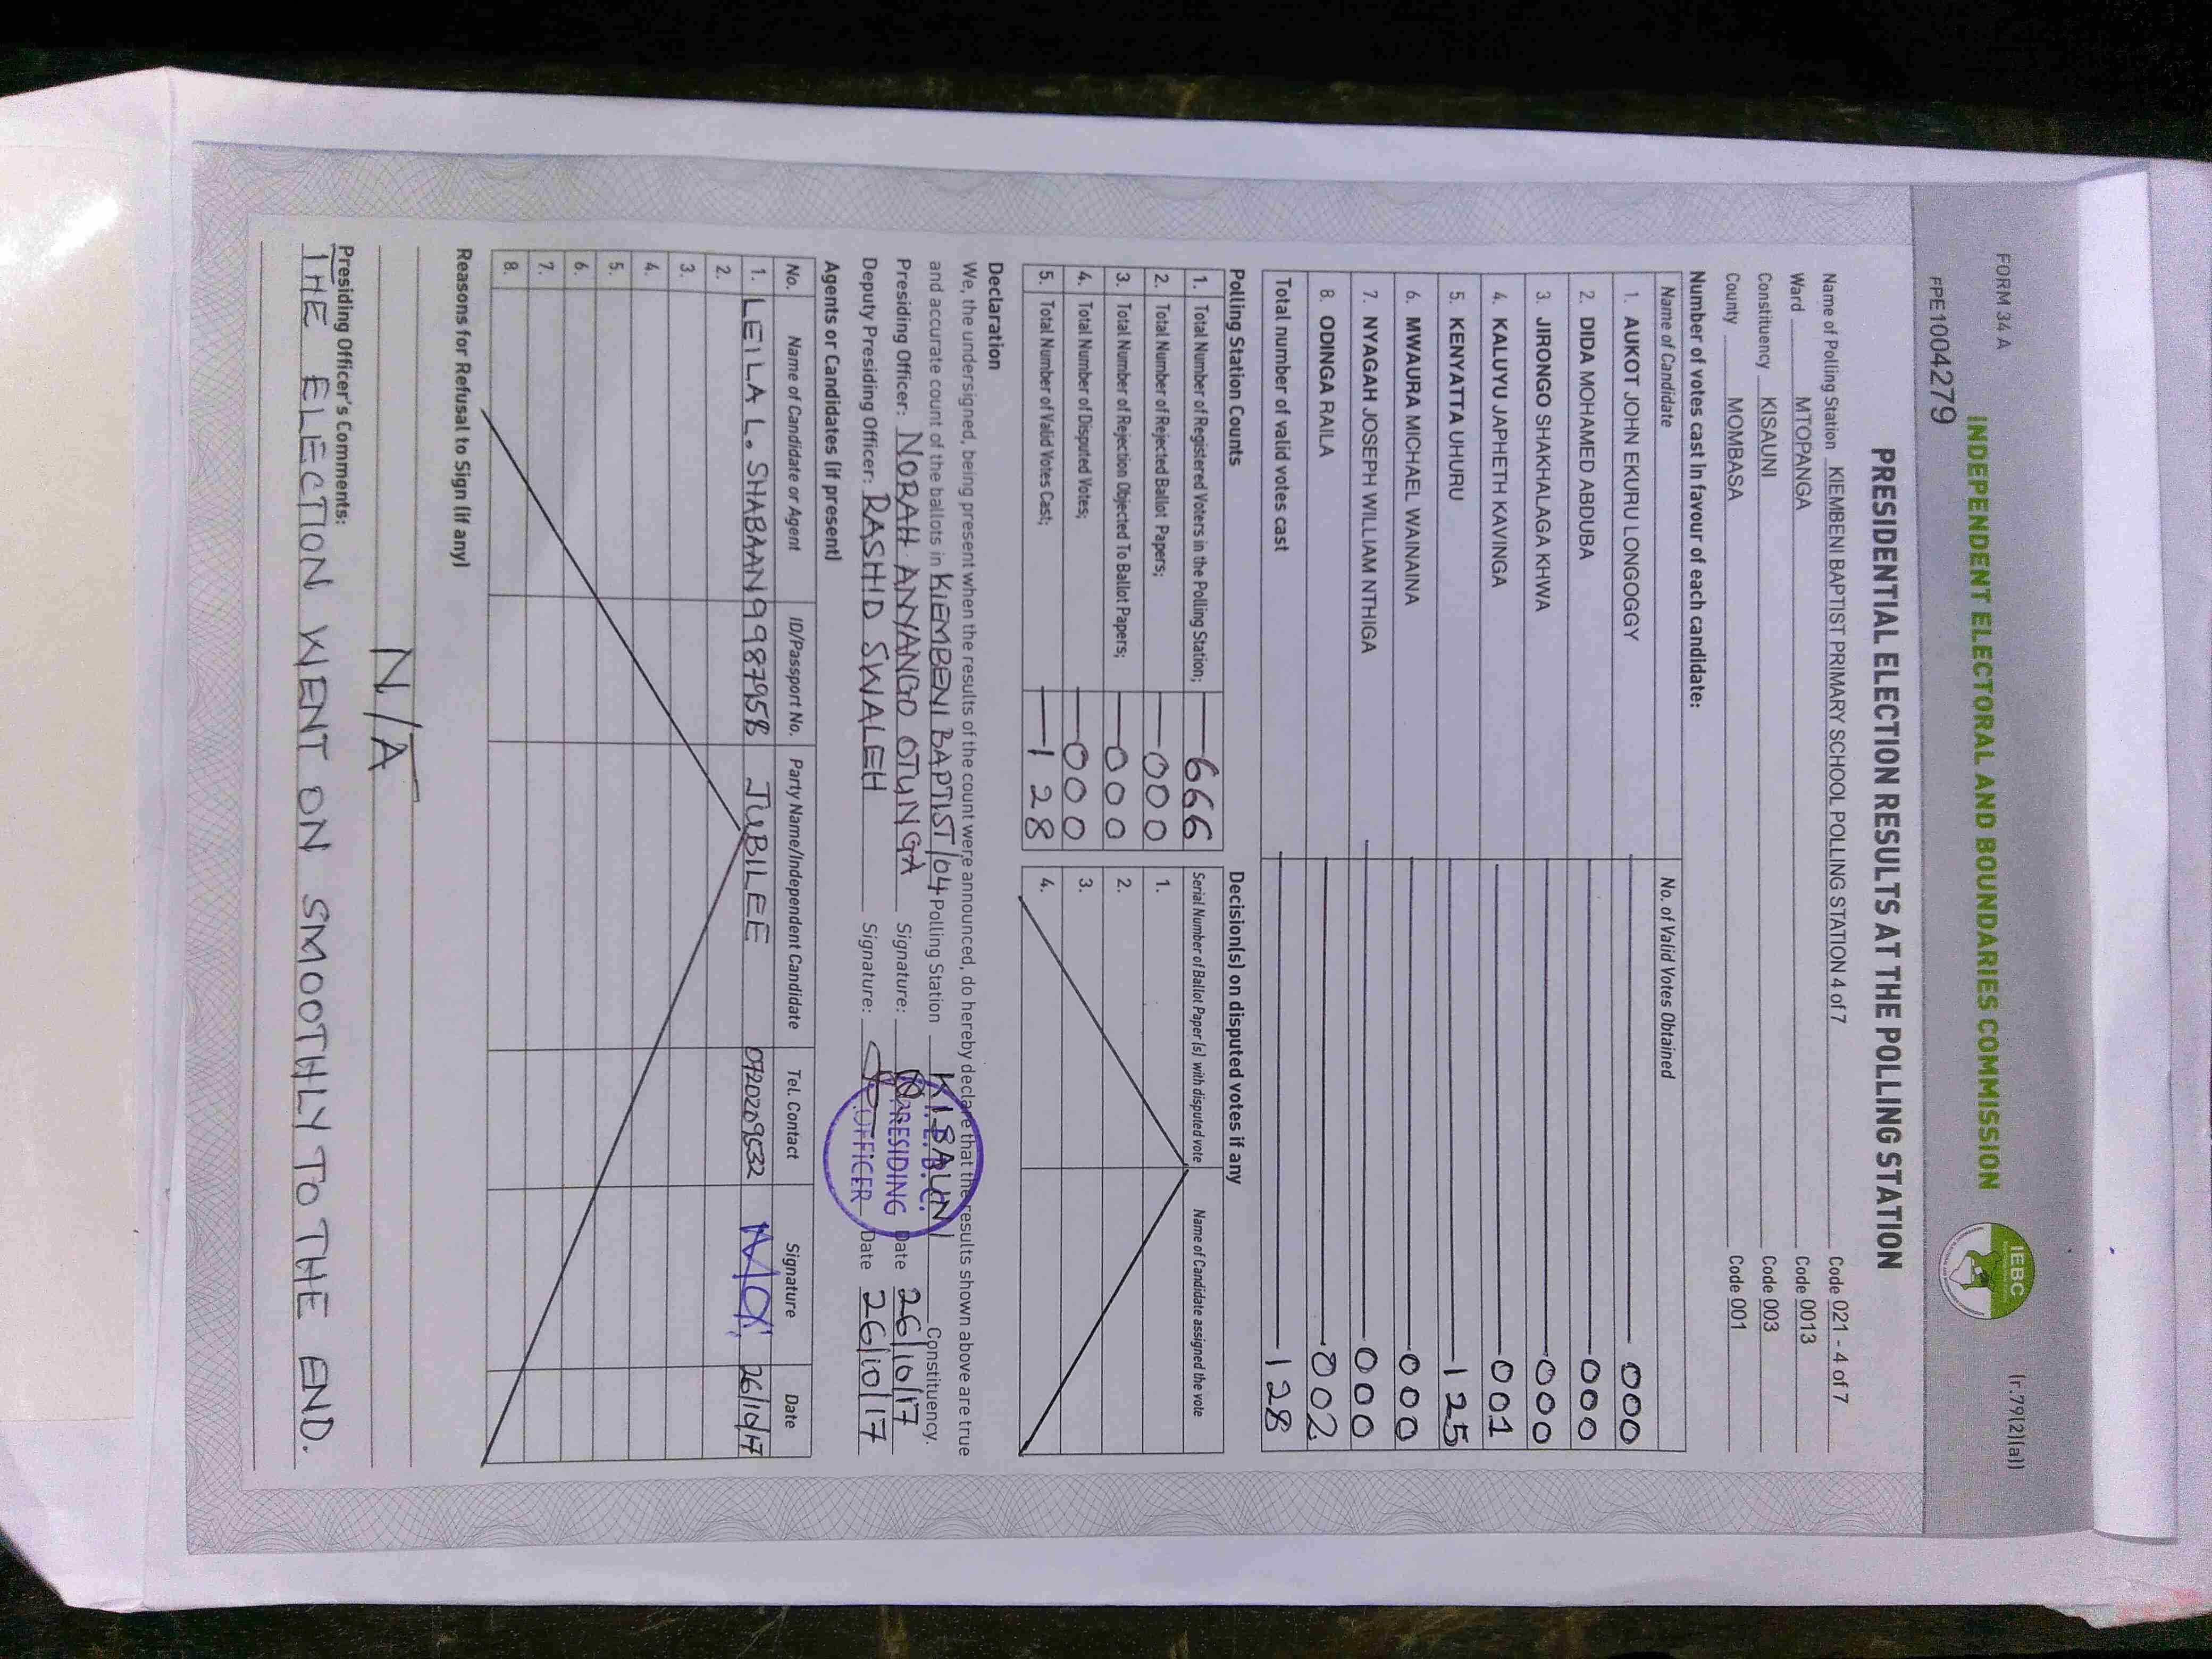 FORM 34 A
(r.79(2)(a))
INDEPENDENT ELECTORAL AND BOUNDARIES COMMISSION
IEBC
PPE1004279
PRESIDENTIAL ELECTION RESULTS AT THE POLLING STATION
Name of Polling Station KIEMBENI BAPTIST PRIMARY SCHOOL POLLING STATION 4 of 7 Code 021 - 4 of 7
Ward MTOPANGA Code 0013
Constituency KISAUNI Code 003
County MOMBASA Code 001
Number of votes cast in favour of each candidate:
Name of Candidate No. of Valid Votes Obtained
1. AUKOT JOHN EKURU LONGOGGY 000
2. DIDA MOHAMED ABDUBA 000
3. JIRONGO SHAKHALAGA KHWA 000
4. KALUYU JAPHETH KAVINGA 001
5. KENYATTA UHURU 125
6. MWAURA MICHAEL WAINAINA 000
7. NYAGAH JOSEPH WILLIAM NTHIGA 000
8. ODINGA RAILA 002
Total number of valid votes cast 128
Polling Station Counts Decision(s) on disputed votes if any
1. Total Number of Registered Voters in the Polling Station; 666 Serial Number of Ballot Paper(s) with disputed vote Name of Candidate assigned the vote
2. Total Number of Rejected Ballot Papers; 000 1.
3. Total Number of Rejection Objected To Ballot Papers; 000 2.
4. Total Number of Disputed Votes; 000 3.
5. Total Number of Valid Votes Cast; 128 4.
Declaration
We, the undersigned, being present when the results of the count were announced, do hereby declare that the results shown above are true
and accurate count of the ballots in KIEMBENI BAPTIST /04 Polling Station KISAUNI Constituency.
Presiding Officer: NORAH ANYANGO OTUNGA Signature: Date 26/10/17
Deputy Presiding Officer: RASHID SWALEH Signature: Date 26/10/17
I.E.B.C.
PRESIDING
OFFICER
Agents or Candidates (if present)
No. Name of Candidate or Agent ID/Passport No. Party Name/Independent Candidate Tel. Contact Signature Date
1. LEILA L. SHABAN 99987958 JUBILEE 0720209532 26/10/17
2.
3.
4.
5.
6.
7.
8.
Reasons for Refusal to Sign (if any)
N/A
Presiding Officer's Comments:
THE ELECTION WENT ON SMOOTHLY TO THE END.